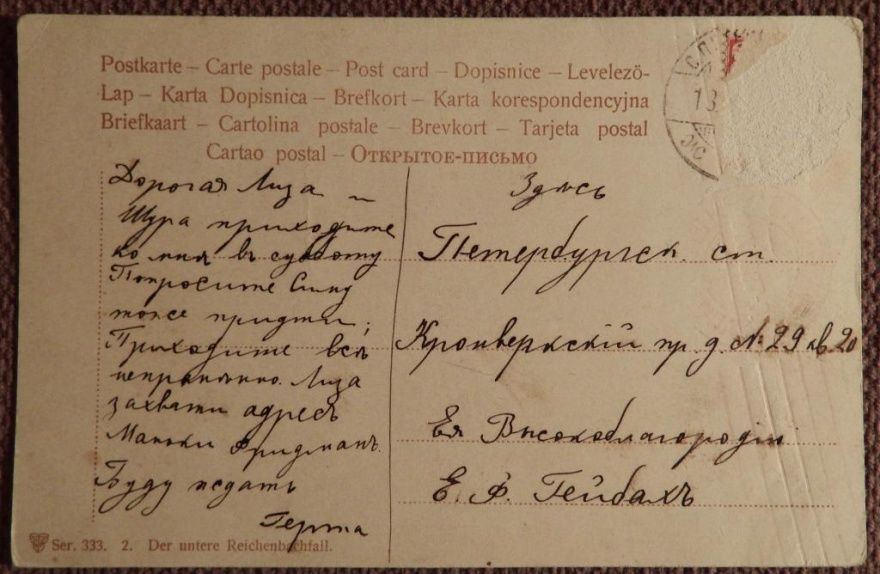 Postkarte – Carte postale – Post card – Dopisnice – Levelező-
Lap – Karta Dopisnica – Brefkort – Karta korespondencyjna
Briefkaart – Cartolina postale – Brevkort – Tarjeta postal
Cartao postal – Открытое-письмо
Дорогая Лиза и
Шура приходите
ко мнѣ въ субботу
Попросите
тоже придти;
Приходите всѣ
непремѣнно. Лиза
захвати адресъ
Маньки Фридманъ.
Буду ждать
Герта
Здѣсь
Петербургск. ст.
Кронверкскій пр. д. № 29 кв. 20
Ея Высокоблагородію
Е. Ф. Гейбахъ
13
Ser. 333. 2. Der untere Reichenbachfall.